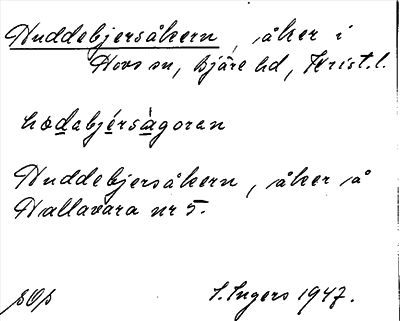 Huddebjersåkern, åker i
Hovs sn, Bjäre hd, Krist.l.
hodabjérsàgoran
Huddebjersåkern, åker på
Hallavara nr 5.
S.Ingers 1947.